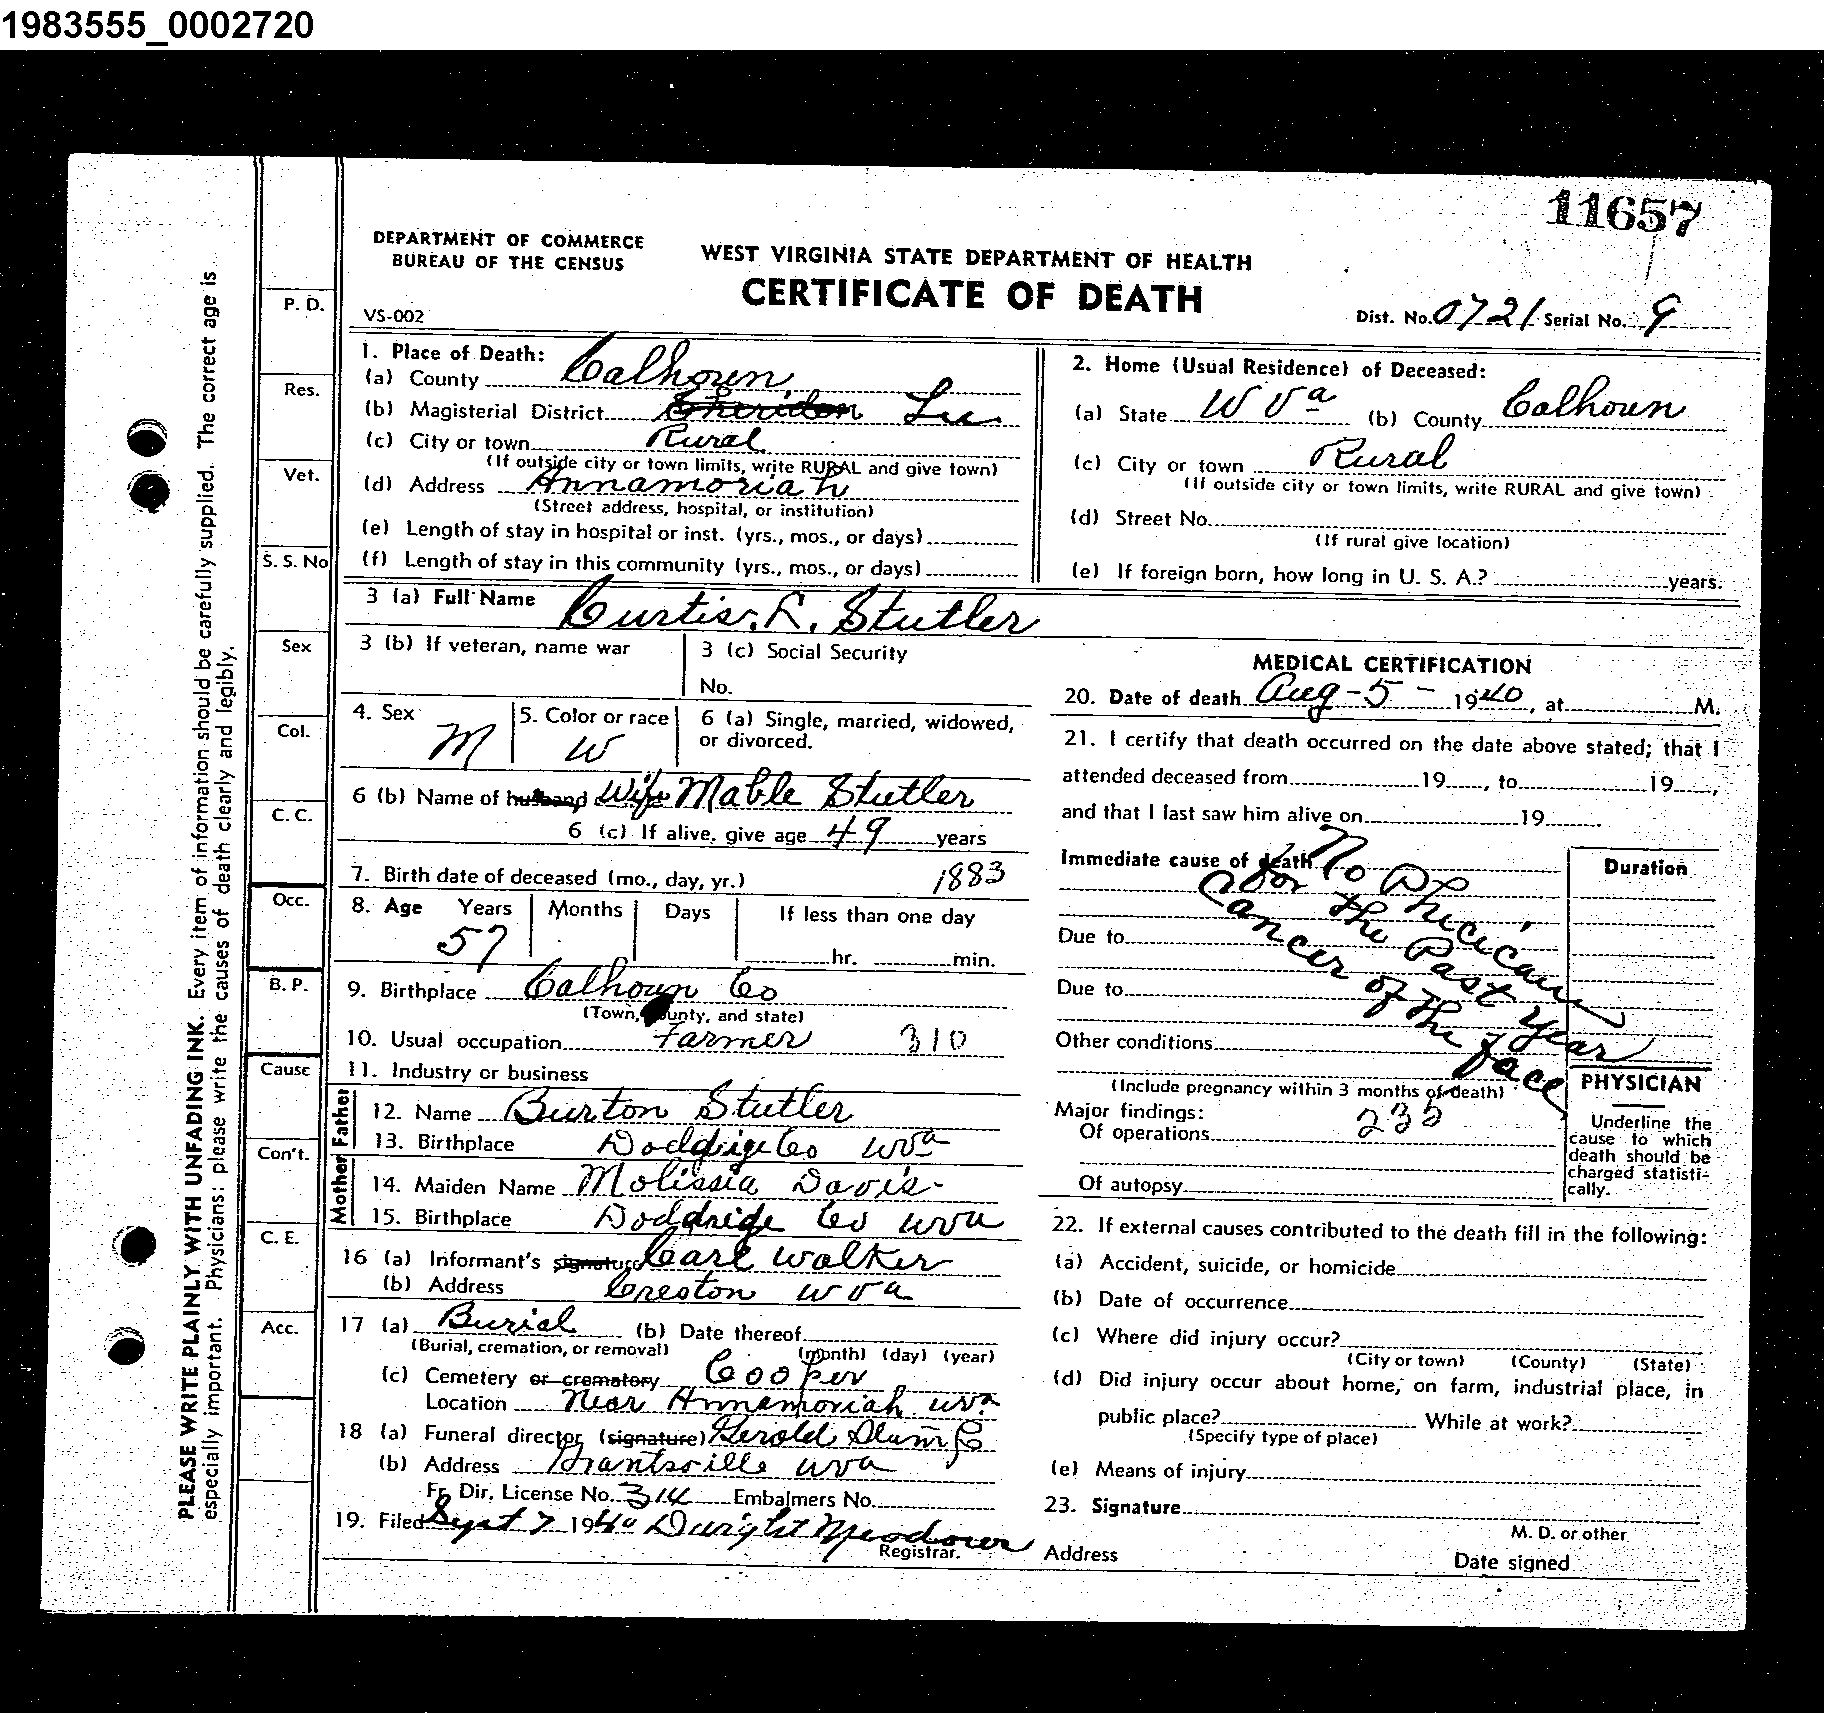 1983555_0002720
11657
DEPARTMENT OF COMMERCE
BUREAU OF THE CENSUS
WEST VIRGINIA STATE DEPARTMENT OF HEALTH
CERTIFICATE OF DEATH
VS-002
Dist. No. 0721 Serial No. 9
1. Place of Death:
(a) County Calhoun
(b) Magisterial District Sheridan Lee
(c) City or town Rural
(If outside city or town limits, write RURAL and give town)
(d) Address Annamoriah
(Street address, hospital, or institution)
(e) Length of stay in hospital or inst. (yrs., mos., or days)
(f) Length of stay in this community (yrs., mos., or days)
2. Home (Usual Residence) of Deceased:
(a) State W Va (b) County Calhoun
(c) City or town Rural
(If outside city or town limits, write RURAL and give town)
(d) Street No.
(If rural give location)
(e) If foreign born, how long in U. S. A.? years.
3 (a) Full Name Curtis. L. Stutler
3 (b) If veteran, name war
3 (c) Social Security
No.
4. Sex M
5. Color or race W
6 (a) Single, married, widowed,
or divorced.
6 (b) Name of husband Wife Mable Stutler
6 (c) If alive, give age 49 years
7. Birth date of deceased (mo., day, yr.) 1883
8. Age Years Months Days If less than one day
57 hr. min.
9. Birthplace Calhoun Co
(Town, county, and state)
10. Usual occupation Farmer 310
11. Industry or business
Father
12. Name Burton Stutler
13. Birthplace Doddrige Co W Va
Mother
14. Maiden Name Molissia Davis
15. Birthplace Doddridge Co W Va
16 (a) Informant's signature Carl Walker
(b) Address Creston W Va
17 (a) Burial (b) Date thereof
(Burial, cremation, or removal) (month) (day) (year)
(c) Cemetery or crematory Cooper
Location Near Annamoriah W Va
18 (a) Funeral director (signature) Gerold
(b) Address Grantsville W Va
Fr. Dir. License No. 314 Embalmers No.
19. Filed Sept 7 1940 Dwight
Registrar.
MEDICAL CERTIFICATION
20. Date of death Aug - 5 - 1940, at M.
21. I certify that death occurred on the date above stated; that I
attended deceased from 19 , to 19 ,
and that I last saw him alive on 19
Immediate cause of death
Duration
No Phicician
for the Past Year
Cancer of the face
Due to
Due to
Other conditions
(Include pregnancy within 3 months of death)
Major findings:
Of operations 235
Of autopsy
PHYSICIAN
Underline the
cause to which
death should be
charged statisti-
cally.
22. If external causes contributed to the death fill in the following:
(a) Accident, suicide, or homicide
(b) Date of occurrence
(c) Where did injury occur?
(City or town) (County) (State)
(d) Did injury occur about home, on farm, industrial place, in
public place? While at work?
(Specify type of place)
(e) Means of injury
23. Signature
M. D. or other
Address Date signed
PLEASE WRITE PLAINLY WITH UNFADING INK. Every item of information should be carefully supplied. The correct age is
especially important. Physicians: please write the causes of death clearly and legibly.
P. D.
Res.
Vet.
S. S. No
Sex
Col.
C. C.
Occ.
B. P.
Cause
Con't.
C. E.
Acc.